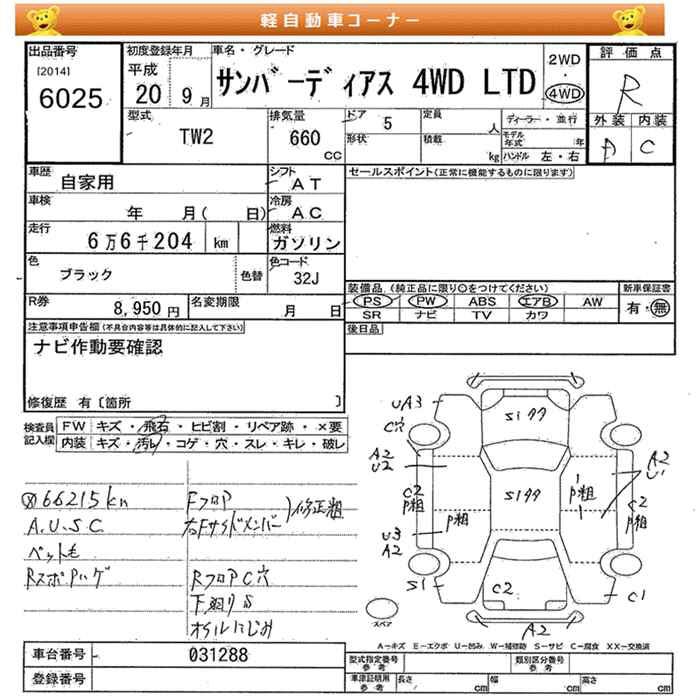 軽自動車コーナー
出品番号
[2014]
6025
初度登録年月
平成
20 9月
車名・グレード
サンバーディアス 4WD LTD
2WD
・
4WD
評価点
R
外装 内装
D C
型式
TW2
排気量
660
CC
ドア 5
形状
定員 人
積載 kg
ディーラー・並行
モデル年式 年
ハンドル 左・右
車歴
自家用
シフト
AT
車検
年 月( 日)
冷房
AC
走行
6万6千204 km
燃料
ガソリン
色
ブラック
色替
色コード
32J
R券
8,950円
名変期限
月 日
セールスポイント(正常に機能するものに限ります)
装備品 (純正品に限り○をつけてください)
PS PW ABS エアB AW
SR ナビ TV カワ
新車保証書
有・無
後日品
注意事項申告欄(不具合内容等は具体的に記入して下さい)
ナビ作動要確認
修復歴 有〔箇所 〕
検査員記入欄
FW キズ・飛石・ヒビ割・リペア跡・×要
内装 キズ・汚れ・コゲ・穴・スレ・キレ・破レ
66215km
A.U.S.C
ペット毛
RスポPハゲ
Fフロア
右Fサイドメンバー
修正粗
RフロアC穴
下廻りS
オイルにじみ
UA3
C穴
Siクク
A2
U2
C2
P粗
P粗
Siクク
P粗
A2
U1
C2
P粗
U3
A2
S1
C2
C1
A2
スペア
A－キズ E－エクボ U－凹み W－補修跡 S－サビ C－腐食 XX－交換済
車台番号
031288
登録番号
型式指定番号
参考
類別区分番号
参考
車庫証明用
参考
長さ cm
幅 cm
高さ cm